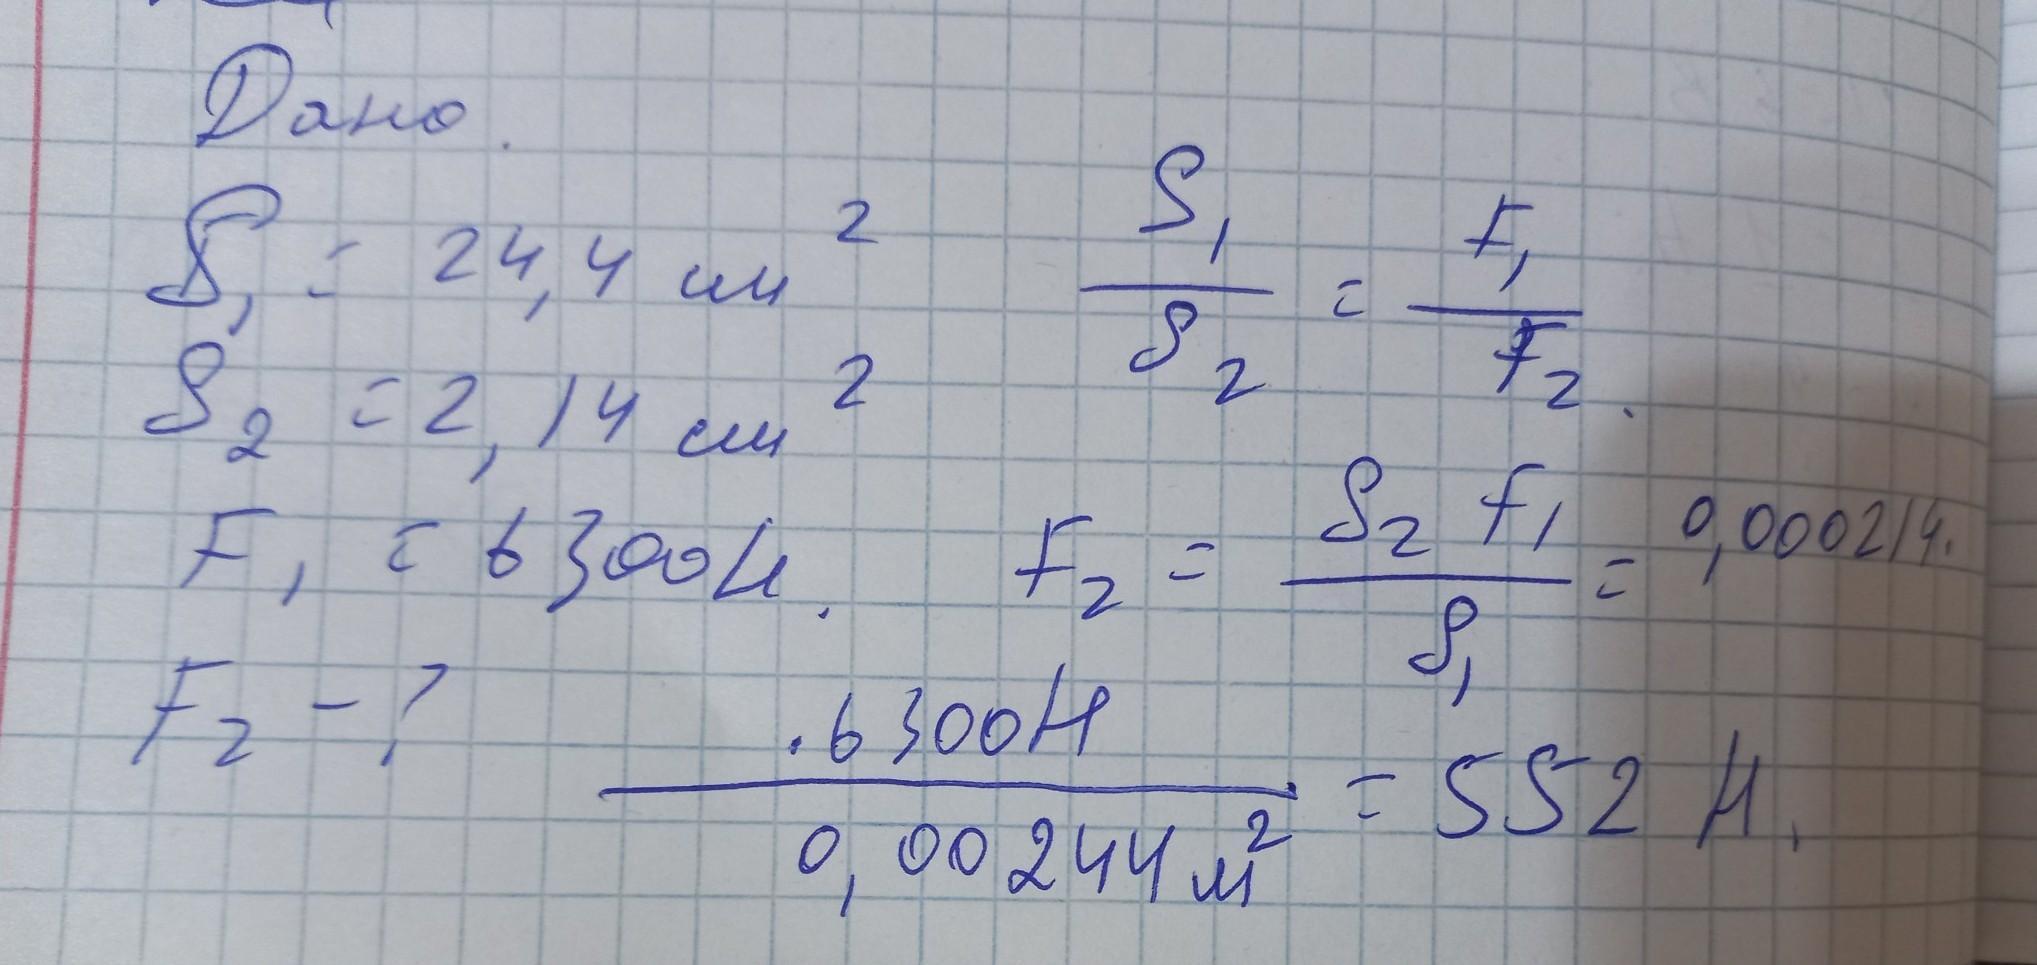 Дано.
S₁ = 24,4 см²
S₂ = 2,14 см²
F₁ = 6300 Н.
F₂ - ?
S₁/S₂ = F₁/F₂.
F₂ = S₂ F₁ / S₁ = 0,000214.
.6300Н / 0,00244 м² = 552 Н.